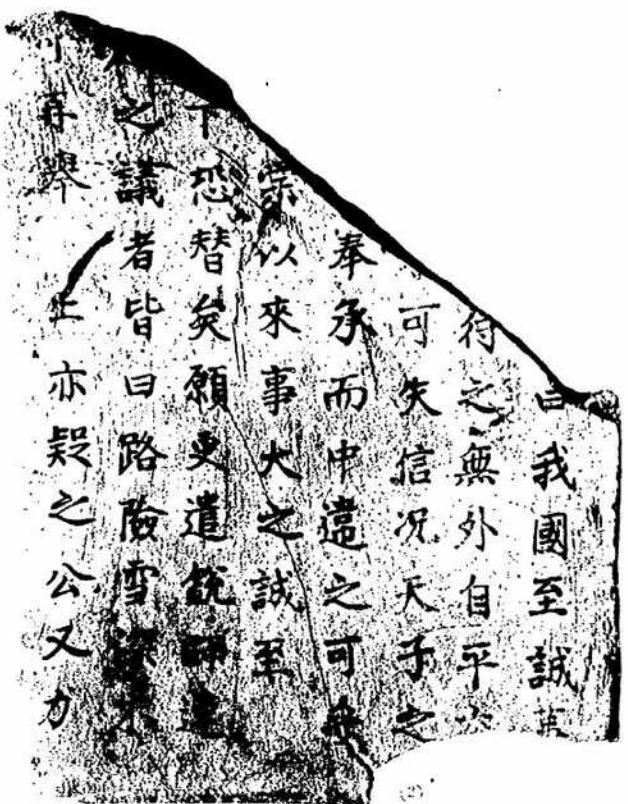 曰我國至誠事
待之無外自平
可失信況天子之
奉承而中違之可
宗以來事大之誠至
下恐替矣願更遣銳師進
之議者皆曰路險雪深不
再擧 上亦疑之公又力
(2)